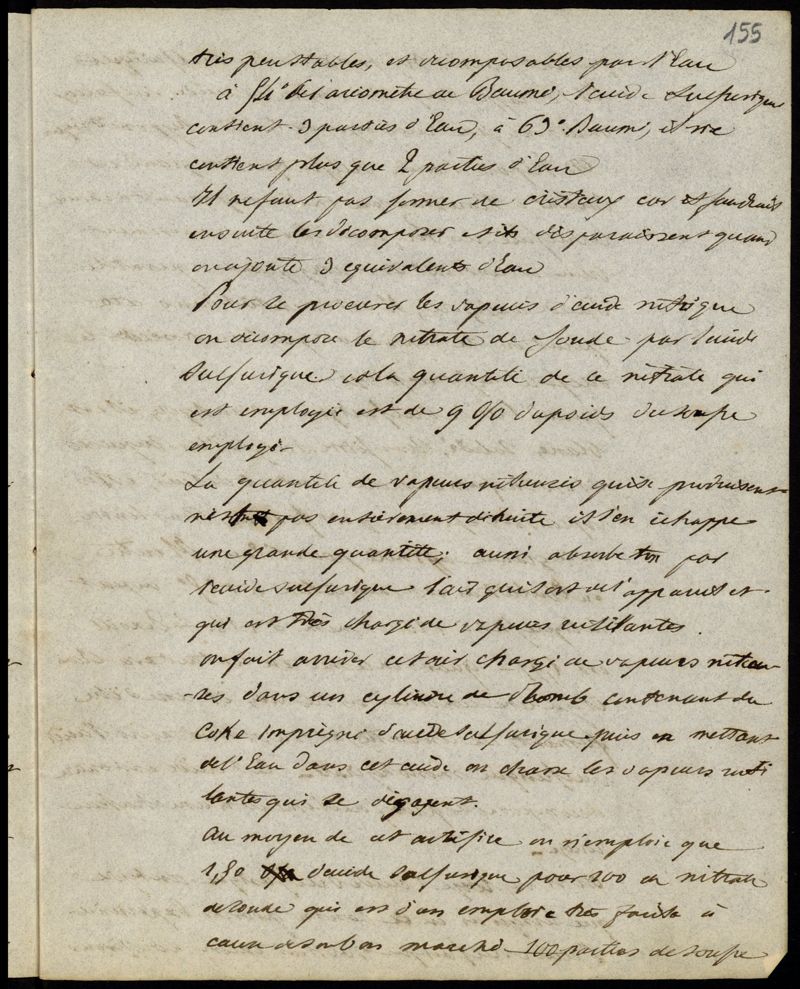 155
très peu stables, et décomposables par l'Eau
à 54° de l'aréomètre de Baumé, l'acide sulfurique
contient 3 parties d'Eau, à 63° Baumé, il ne
contient plus que 2 parties d'Eau
Il ne faut pas former de cristaux car il faudrait
ensuite les décomposer et ils disparaissent quand
on ajoute 3 equivalents d'Eau
Pour se procurer les vapeurs d'acide nitrique
on décompose le nitrate de soude par l'acide
sulfurique et la quantité de ce nitrate qui
est employé est de 9 % du poids du soufre
employé.
La quantité de vapeurs nitreuses qui se produisent
n'est pas entièrement détruite il s'en échappe
une grande quantité; aussi absorbe t'on par
l'acide sulfurique l'air qui sort de l'appareil et
qui est très chargé de vapeurs rutilantes.
on fait arriver cet air chargé de vapeurs nitreu-
-ses dans un cylindre de Plomb contenant du
Coke imprégné d'acide sulfurique puis en mettant
de l'Eau dans cet acide on chasse les vapeurs ruti
lantes qui se dégagent.
au moyen de cet artifice on n'emploie que
1,50 d'acide sulfurique pour 100 de nitrate
de soude qui est d'un emploi très
cause de son bon marché 100 parties de soufre